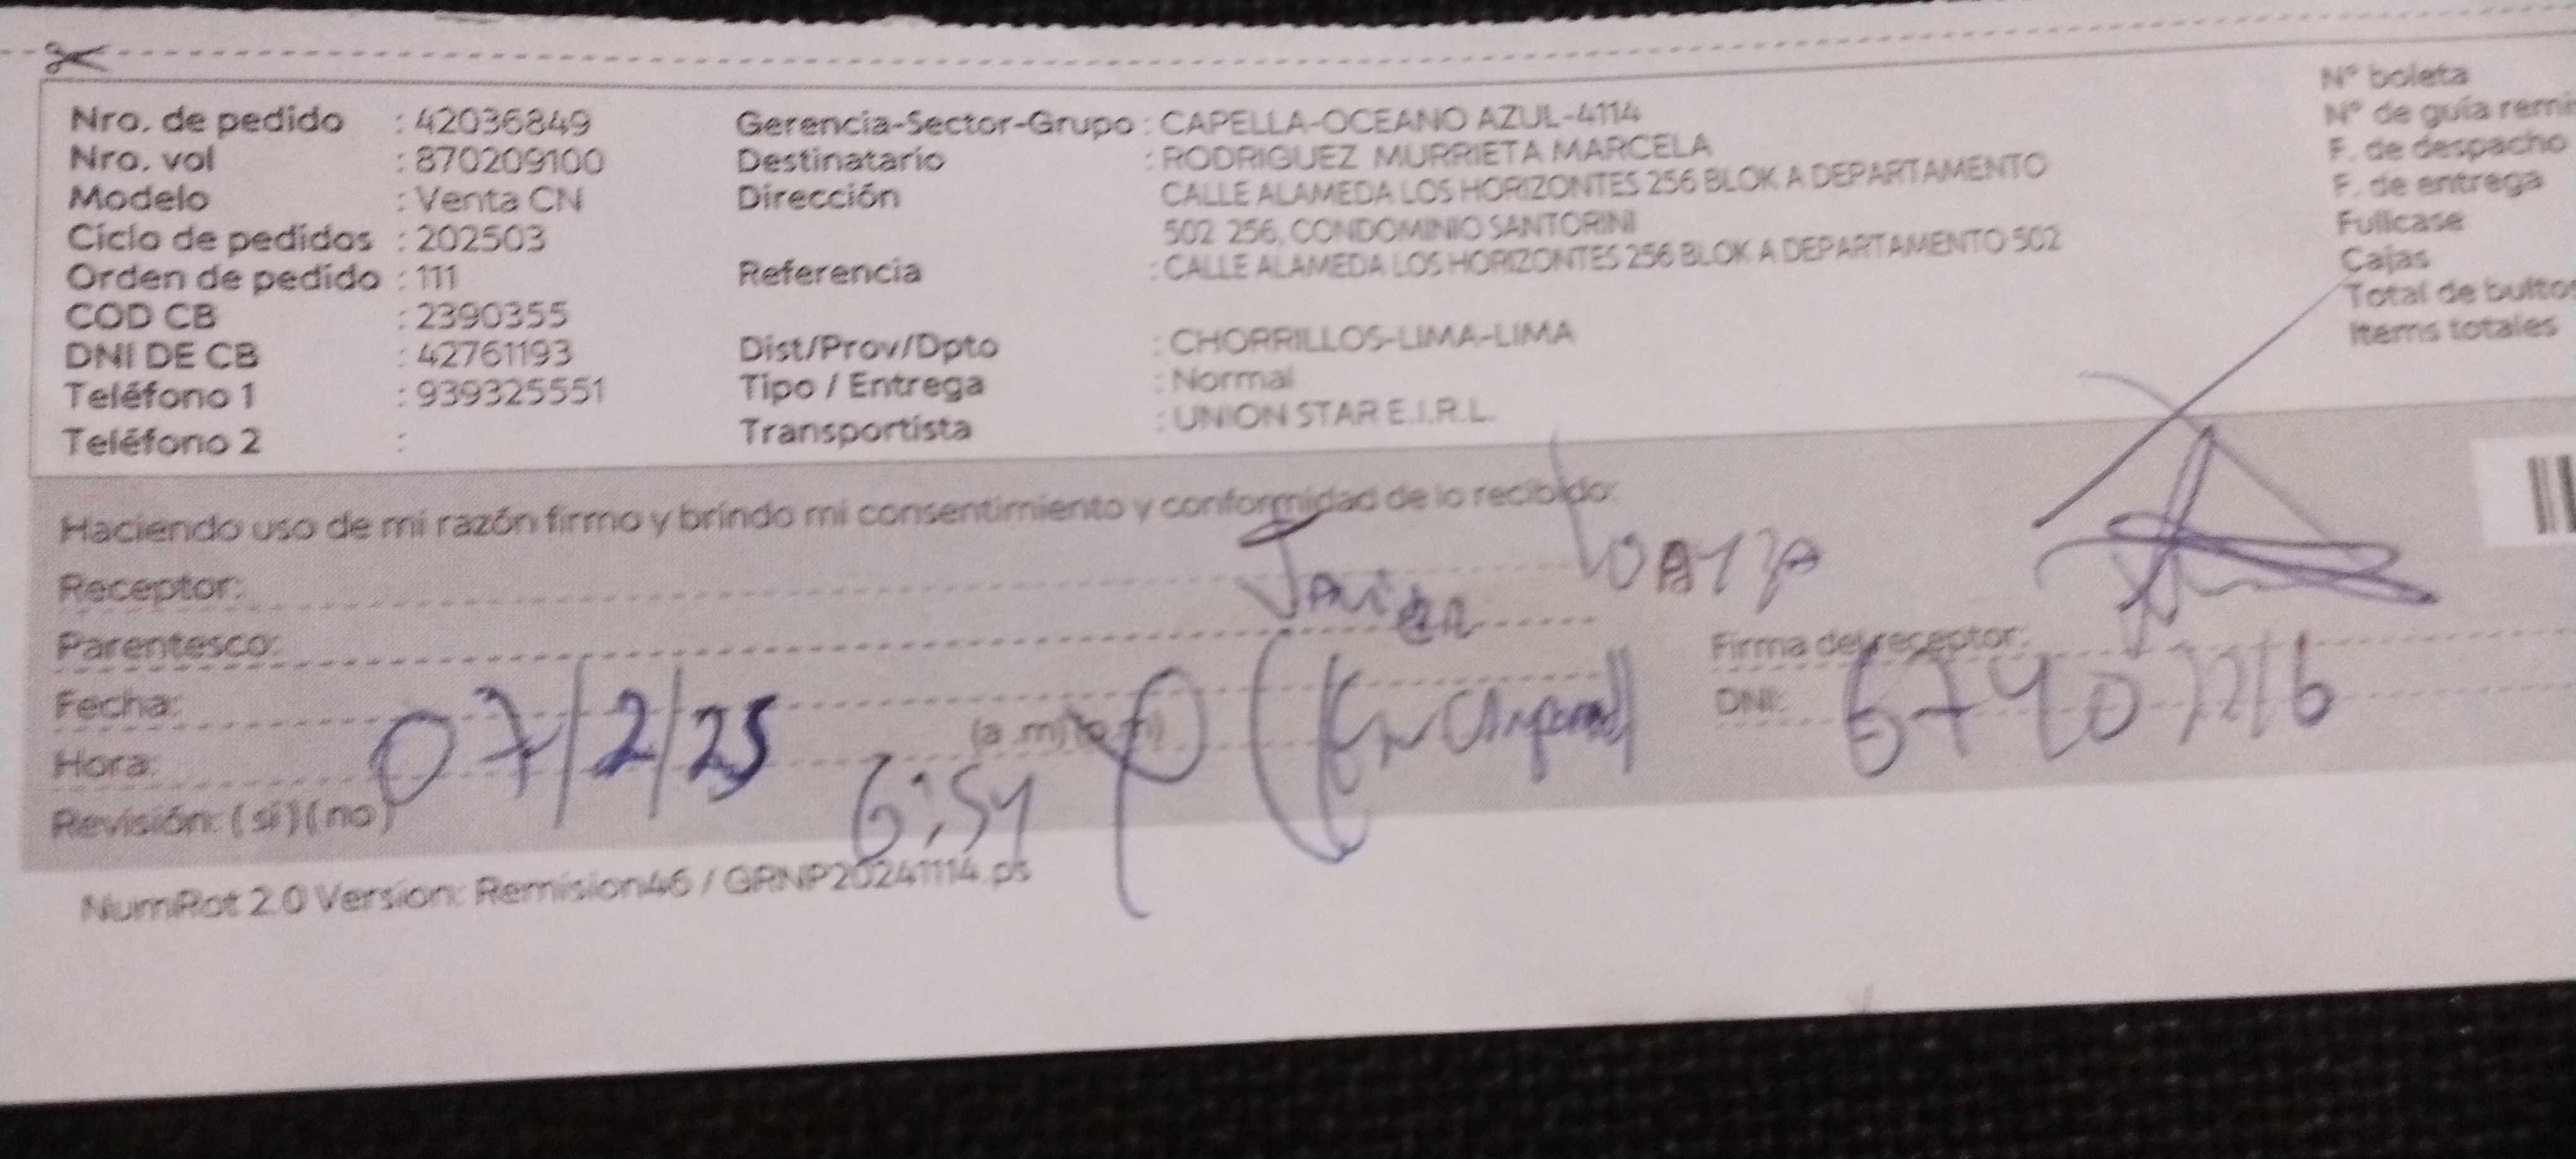 Nro. de pedido : 42036849
Nro. vol : 870209100
Modelo : Venta CN
Ciclo de pedidos : 202503
Orden de pedido : 111
COD CB : 2390355
DNI DE CB : 42761193
Teléfono 1 : 939325551
Teléfono 2 :
Gerencia-Sector-Grupo : CAPELLA-OCEANO AZUL-4114
Destinatario : RODRIGUEZ MURRIETA MARCELA
Dirección CALLE ALAMEDA LOS HORIZONTES 256 BLOK A DEPARTAMENTO
502 256, CONDOMINIO SANTORINI
Referencia : CALLE ALAMEDA LOS HORIZONTES 256 BLOK A DEPARTAMENTO 502
Dist/Prov/Dpto : CHORRILLOS-LIMA-LIMA
Tipo / Entrega : Normal
Transportista : UNION STAR E.I.R.L.
N° boleta
N° de guía remi
F. de despacho
F. de entrega
Fullcase
Cajas
Total de bultos
Items totales
Haciendo uso de mi razón firmo y brindo mi consentimiento y conformidad de lo recibido:
Receptor: Javier Loayza
Parentesco:
Fecha: 07/2/25
Hora: 6:54 (a .m) (p.m)
Revisión: (si) (no)
Firma del receptor:
DNI:
NumRot 2.0 Version: Remision46 / GRNP20241114.ps